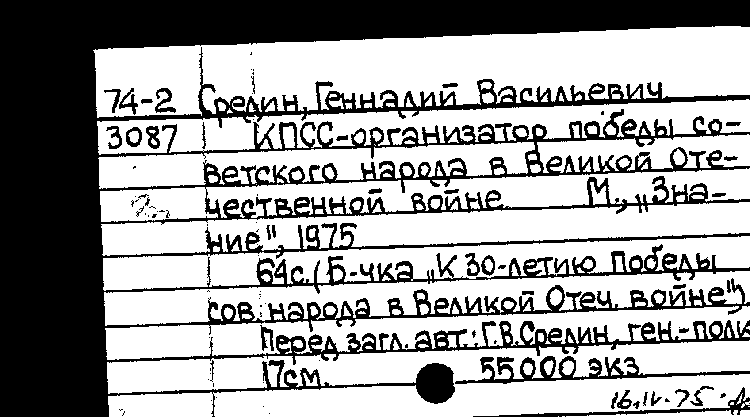 74-2 Средин, Геннадий Васильевич.
3087 КПСС-организатор победы со-
ветского народа в Великой Оте-
чественной войне. М., „Зна-
ние", 1975
64с. (Б-чка „К 30-летию Победы
сов. народа в Великой Отеч. войне").
Перед загл. авт.: Г.В.Средин, ген.-полк
17см. 55000 экз.
16.IV.75